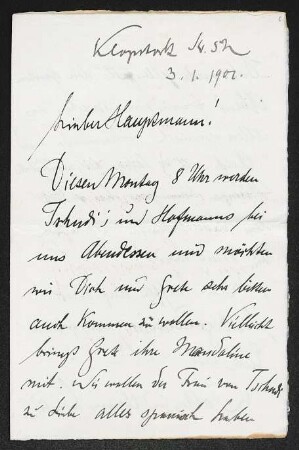 Klopstock Str. 52
3. 1. 1902.
Lieber Hauptmann!
Diesen Montag 8 Uhr werden
Tschudi's und Hofmanns bei
uns Abendessen und möchten
wir Dich und Grete sehr bitten
auch kommen zu wollen. Vielleicht
bringt Grete ihre Mandoline
mit. Wir wollen der Frau von Tschudi
zu Liebe alles spanisch haben